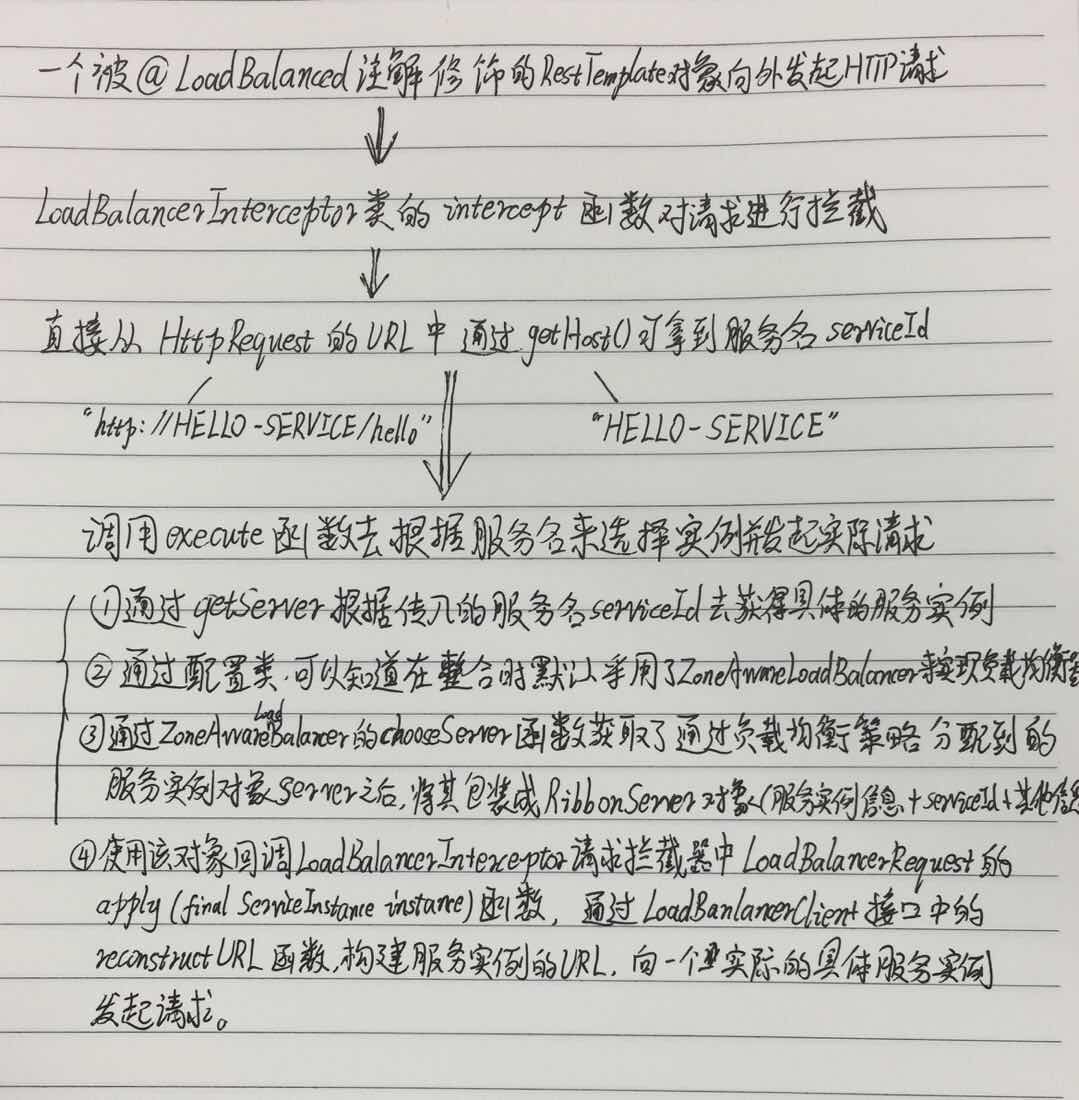 一个被@LoadBalanced注解修饰的RestTemplate对象向外发起HTTP请求
LoadBalancerInterceptor类的intercept函数对请求进行拦截
直接从HttpRequest的URL中通过getHost()可拿到服务名serviceId
"http://HELLO-SERVICE/hello" "HELLO-SERVICE"
调用execute函数去根据服务名来选择实例并发起实际请求
①通过getServer根据传入的服务名serviceId去获得具体的服务实例
②通过配置类,可以知道在整合时默认采用了ZoneAwareLoadBalancer来实现负载均衡器
③通过ZoneAwareLoadBalancer的chooseServer函数获取了通过负载均衡策略分配到的
服务实例对象Server之后,将其包装成RibbonServer对象(服务实例信息+serviceId+其他信息
④使用该对象回调LoadBalancerInterceptor请求拦截器中LoadBalancerRequest的
apply(final ServiceInstance instance)函数,通过LoadBanlancerClient接口中的
reconstructURL函数,构建服务实例的URL,向一个实际的具体服务实例
发起请求。